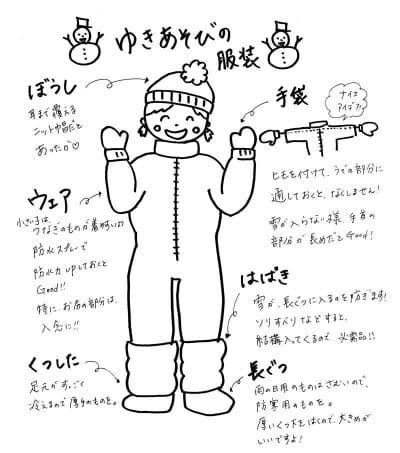 ゆきあそびの
服装
ぼうし
耳まで覆える
ニット帽だと
あったか♡
手袋
ナイス
アイデア!
ヒモを付けて、うでの部分に
通しておくと、なくしません!
雪が入らない様 手首の
部分が長めだとGood!
ウェア
小さい子は、つなぎのものが着やすい
防水スプレーで
防水力UPしておくと
Good!!
特に、お尻の部分は、
入念に!!
はばき
雪が、長ぐつに入るのを防ぎます!
ソリすべりなどすると、
結構入ってくるので、必需品!!
くつした
足元がすごく
冷えるので厚手のものを。
長ぐつ
雨の日用のものはさむいので、
防寒用のものを。
厚いくつ下をはくので、大きめが
いいですよ!